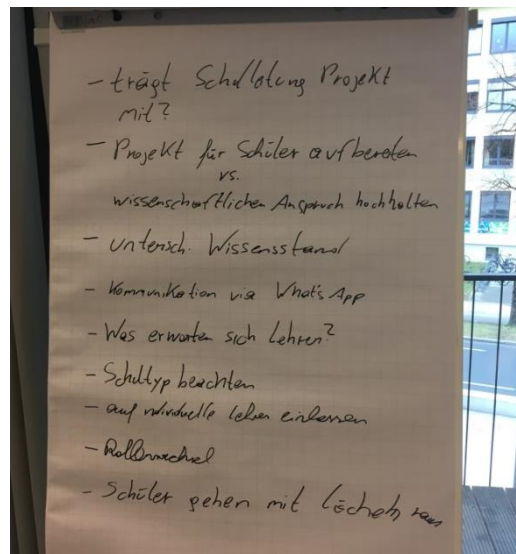 - trägt Schulleitung Projekt
mit?
- Projekt für Schüler aufbereiten
vs.
wissenschaftlichen Anspruch hochhalten
- untersch. Wissensstand
- Kommunikation via What's App
- Was erwarten sich Lehrer?
- Schultyp beachten
- auf individuelle Lehrer einlassen
- Rollenwechsel
- Schüler gehen mit Lächeln raus